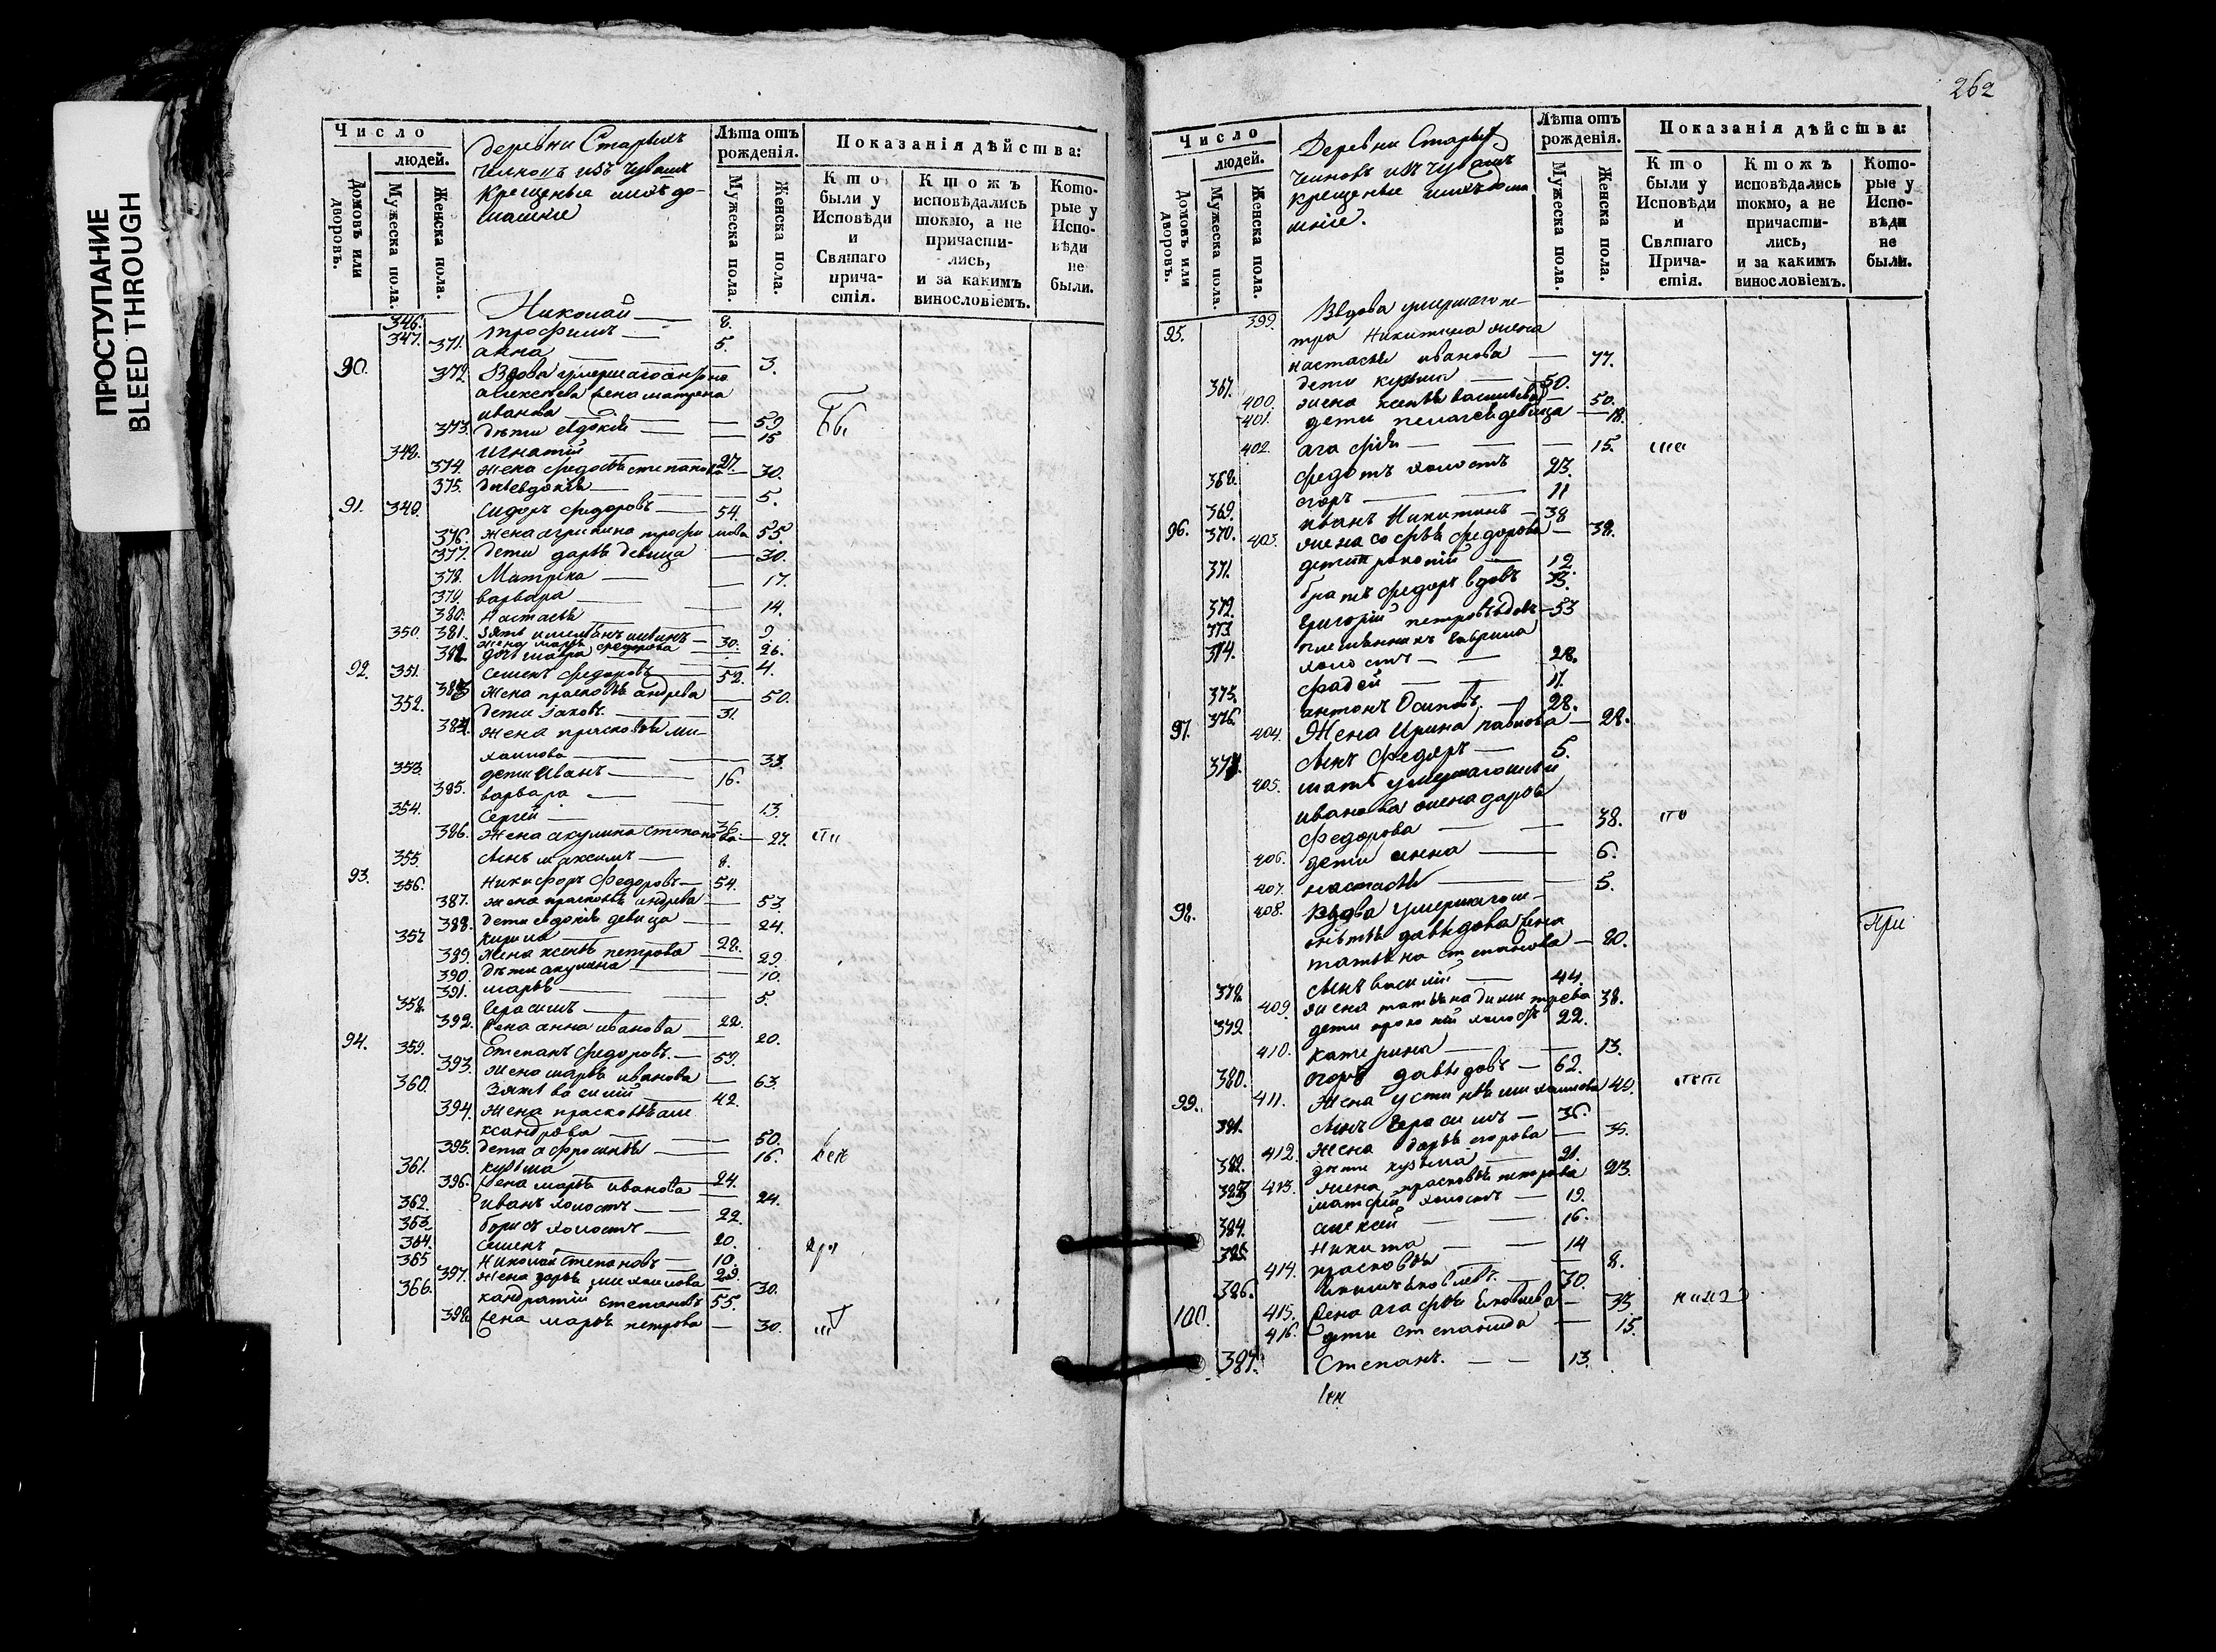 ПРОСТУПАНИЕ
BLEED THROUGH
Число
людей.
Домовъ или дворовъ.
Мужеска пола.
Женска пола.
деревни Старыхъ
изъ чувашъ
крещеные ихъ до-
машние
Лѣта отъ рожденія.
Мужеска пола.
Женска пола.
Показанія дѣйства:
Кто были у Исповѣди и Святаго прича-стія.
Ктожъ исповѣдались токмо, а не причасти-лись, и за какимъ винословіемъ.
Кото-рые у Испо-вѣди не были.
346. Николай — 8.
347. трофимъ — 5.
371. анна — 3.
90. 372. Вдова умершаго
алексеева жена матрена
иванова — 59
373. дѣти евдокия — 15
348. игнатий — 27.
374. жена федосья степанова — 30.
375. евдокия — 5.
91. 349. Сидоръ федоровъ — 54.
376. жена агрипина трофимова 55.
377. дети дарья девица — 30.
378. Матрена — 17.
379. варвара — 14.
380. Настасья — 9.
350. 381. зять — 30.
жена марья федорова — 26.
382. дочь мавра — 4.
92. 351. Семенъ федоровъ — 52.
383. жена прасковья андрева — 50.
352. дети Іаковъ — 31.
384. Жена прасковья ми-
хаилова — 33.
353. дети Иванъ — 16.
385. варвара — 13.
354. Сергей — 36.
386. жена акулина степанова — 27.
355. Сынъ максимъ — 8.
93. 356. Никифоръ Федоровъ — 54.
387. жена прасковья андрева — 53.
388. дети евдокия девица — 24.
357 кирила — 28.
389. жена ксенья петрова — 29.
390. дѣти акулина — 10.
391. марья — 5.
358. Герасимъ — 22.
392. жена анна иванова — 20.
94. 359. Степанъ федоровъ — 59.
393. жена марья иванова — 63.
360. Зять василий — 42.
394. жена прасковья але
ксандрова — 50.
395. дети афросинья — 16.
361. кузьма — 24.
396. жена марья иванова — 24.
362. иванъ холостъ — 22.
363. борисъ холостъ — 20.
364. Семенъ — 10.
365 Николай Степановъ — 29.
397. жена дарья михаилова — 30.
366. кандратий степановъ 55.
398. жена марья петрова — 30.
262
Число
людей.
Домовъ или дворовъ.
Мужеска пола.
Женска пола.
Деревни Старыхъ
изъ чувашъ
крещеные ихъ дома
шніе.
Лѣта отъ рожденія.
Мужеска пола.
Женска пола.
Показанія дѣйства:
Кто были у Исповѣди и Святаго Прича-стія.
Ктожъ исповѣдались токмо, а не причасти-лись, и за какимъ винословіемъ.
Кото-рые у Испо-вѣди не были.
95. 399. Вдова умершаго пе-
тра Никитина жена
настасья иванова — 77.
367. дети кузьма — 50.
400. жена ксенья васильева — 50.
401. дети пелагея девица — 18.
402. агафья — 15.
368. федотъ холостъ 23.
369. егоръ — 11
96. 370. иванъ Никитинъ — 38
403. жена софья федорова — 38.
371. дети прокопий — 12.
372. братъ федоръ вдовъ 33.
373 григорий петровъ вдовъ — 53
374. племянникъ гаврила
холостъ — 28.
375. фадей — 11.
97. 376. антонъ Осиповъ — 28.
404. Жена Ирина павлова — 28.
377. Сынъ Федоръ — 5.
405. мать умершаго
иванова жена дарья
Федорова — 38.
406. дети анна — 6.
407. настасья — 5.
98. 408. Вдова умершаго
давыдова жена
татьяна степанова — 80.
При
378. Сынъ василий — 44.
409. жена татьяна димитрева 38.
379. дети прокопий холостъ 22.
410. катерина — 13.
99. 380. егоръ давыдовъ — 62.
411. Жена устинья михаилова 40.
381. Сынъ Герасимъ — 36.
412. Жена дарья егорова — 35.
382. дети кузьма — 21.
413. жена прасковья петрова 23.
383 матфей холостъ — 19.
384. алексей — 16.
385. Никита — 14
414. прасковья — 8.
100. 386. Яковлевъ — 30.
415. жена агафья Яковлева — 33.
416. дети степанида — 15.
387. Степанъ — 13.